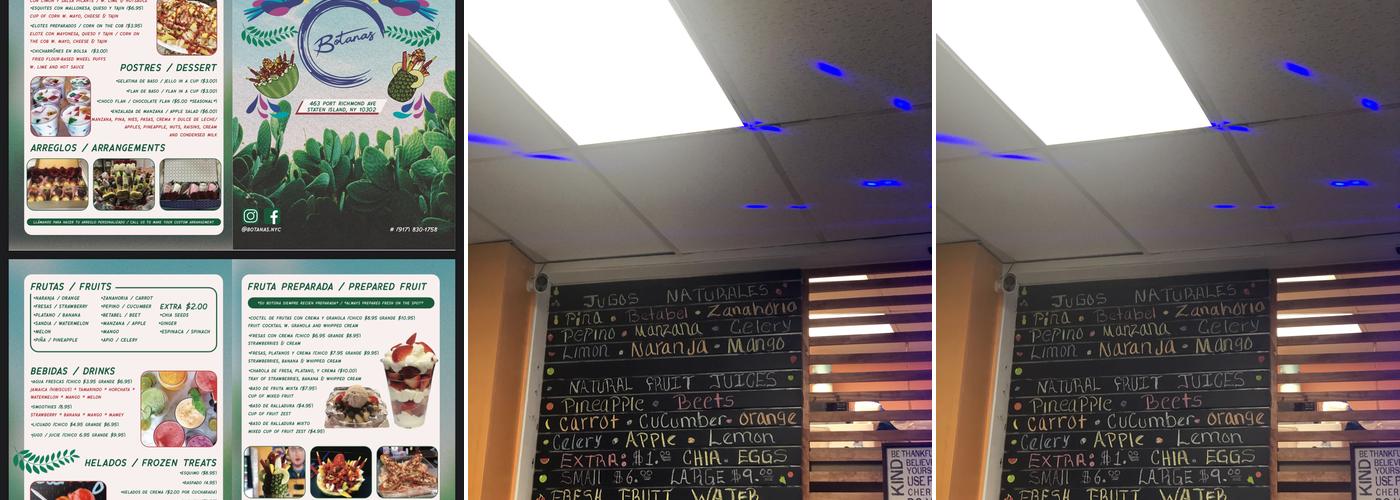 •ESQUITES CON MALLONESA, QUESO Y TAJIN ($6.95)
CUP OF CORN W. MAYO, CHEESE & TAJIN
•ELOTES PREPARADOS / CORN ON THE COB ($3.95)
ELOTE CON MAYONESA, QUESO Y TAJIN / CORN ON
THE COB W. MAYO, CHEESE & TAJIN
•CHICHARRÓNES EN BOLSA ($3.00)
FRIED FLOUR-BASED WHEEL PUFFS
W. LIME AND HOT SAUCE
POSTRES / DESSERT
•GELATINA DE BASO / JELLO IN A CUP ($3.00)
•FLAN DE BASO / FLAN IN A CUP ($3.00)
•CHOCO FLAN / CHOCOLATE FLAN ($5.00 *SEASONAL*)
•ENZALADA DE MANZANA / APPLE SALAD ($6.00)
MANZANA, PINA, NIES, PASAS, CREMA Y DULCE DE LECHE/
APPLES, PINEAPPLE, NUTS, RAISINS, CREAM
AND CONDENSED MILK
ARREGLOS / ARRANGEMENTS
LLÁMANOS PARA HACER TU ARREGLO PERSONALIZADO / CALL US TO MAKE YOUR CUSTOM ARRANGEMENT
Botanas
463 PORT RICHMOND AVE
STATEN ISLAND, NY 10302
@BOTANAS.NYC
# (917) 830-1758
FRUTAS / FRUITS
•NARANJA / ORANGE
•FRESAS / STRAWBERRY
•PLATANO / BANANA
•SANDIA / WATERMELON
•MELON
•PIÑA / PINEAPPLE
•ZANAHORIA / CARROT
•PEPINO / CUCUMBER
•BETABEL / BEET
•MANZANA / APPLE
•MANGO
•APIO / CELERY
EXTRA $2.00
•CHIA SEEDS
•GINGER
•ESPINACA / SPINACH
BEBIDAS / DRINKS
•AGUA FRESCAS (CHICO $3.95 GRANDE $6.95)
JAMAICA (HIBISCUS) * TAMARINDO * HORCHATA *
WATERMELON * MANGO * MELON
•SMOOTHIES (8.95)
STRAWBERRY * BANANA * MANGO * MAMEY
•LICUADO (CHICO $4.95 GRANDE $6.95)
•JUGO / JUICE (CHICO 6.95 GRANDE $9.95)
HELADOS / FROZEN TREATS
•ESQUIMO ($8.95)
•RASPADO (4.95)
•HELADOS DE CREMA ($2.00 POR CUCHARADA)
FRUTA PREPARADA / PREPARED FRUIT
*SU BOTANA SIEMPRE RECIEN PREPARADA* / *ALWAYS PREPARED FRESH ON THE SPOT*
•COCTEL DE FRUTAS CON CREMA Y GRANOLA (CHICO $8.95 GRANDE $10.95)
FRUIT COCKTAIL W. GRANOLA AND WHIPPED CREAM
•FRESAS CON CREMA (CHICO $6.95 GRANDE $8.95)
STRAWBERRIES & CREAM
•FRESAS, PLATANOS Y CREMA (CHICO $7.95 GRANDE $9.95)
STRAWBERRIES, BANANA & WHIPPED CREAM
•CHAROLA DE FRESA, PLATANO, Y CREMA ($10.00)
TRAY OF STRAWBERRIES, BANANA & WHIPPED CREAM
•BASO DE FRUTA MIXTA ($7.95)
CUP OF MIXED FRUIT
•BASO DE RALLADURA ($4.95)
CUP OF FRUIT ZEST
•BASO DE RALLADURA MIXTO
MIXED CUP OF FRUIT ZEST ($4.95)
JUGOS NATURALES
Piña • Betabel • Zanahorio
Pepino • Manzana • Celery
Limon • Naranja • Mango
NATURAL FRUIT JUICES
Pineapple • Beets
Carrot • Cucumber • orange
Celery • Apple • Lemon
EXTRA: $1.00 CHIA • EGGS
SMAll $6.00 LARGE $9.00
FRESH FRUIT WATER
BE THANKFUL
BELIEVE
YOURS
USE P
CHER
KIND
JUGOS NATURALES
Piña • Betabel • Zanahorio
Pepino • Manzana • Celery
Limon • Naranja • Mango
NATURAL FRUIT JUICES
Pineapple • Beets
Carrot • Cucumber • orange
Celery • Apple • Lemon
EXTRA: $1.00 CHIA • EGGS
SMAll $6.00 LARGE $9.00
FRESH FRUIT WATER
BE THANKFUL
BELIEVE
YOURS
USE P
CHER
KIND